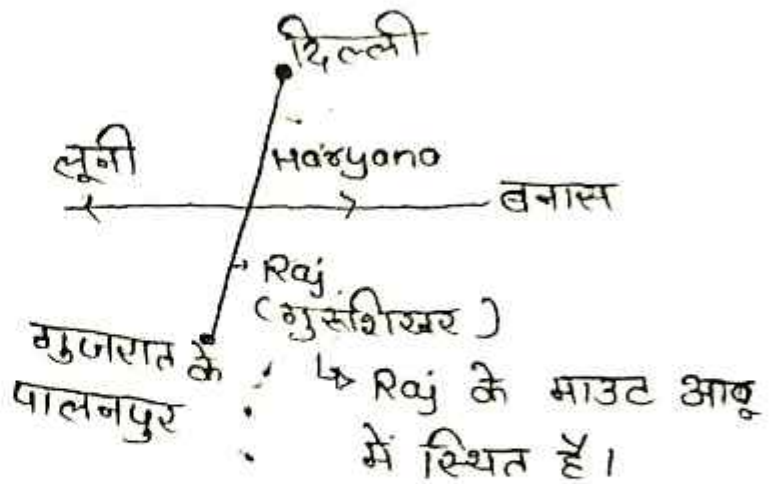 दिल्ली
लूनी
Haryana
बनास
Raj
(गुरुशिखर)
गुजरात के
पालनपुर
↳ Raj के माउट आबू
में स्थित है।